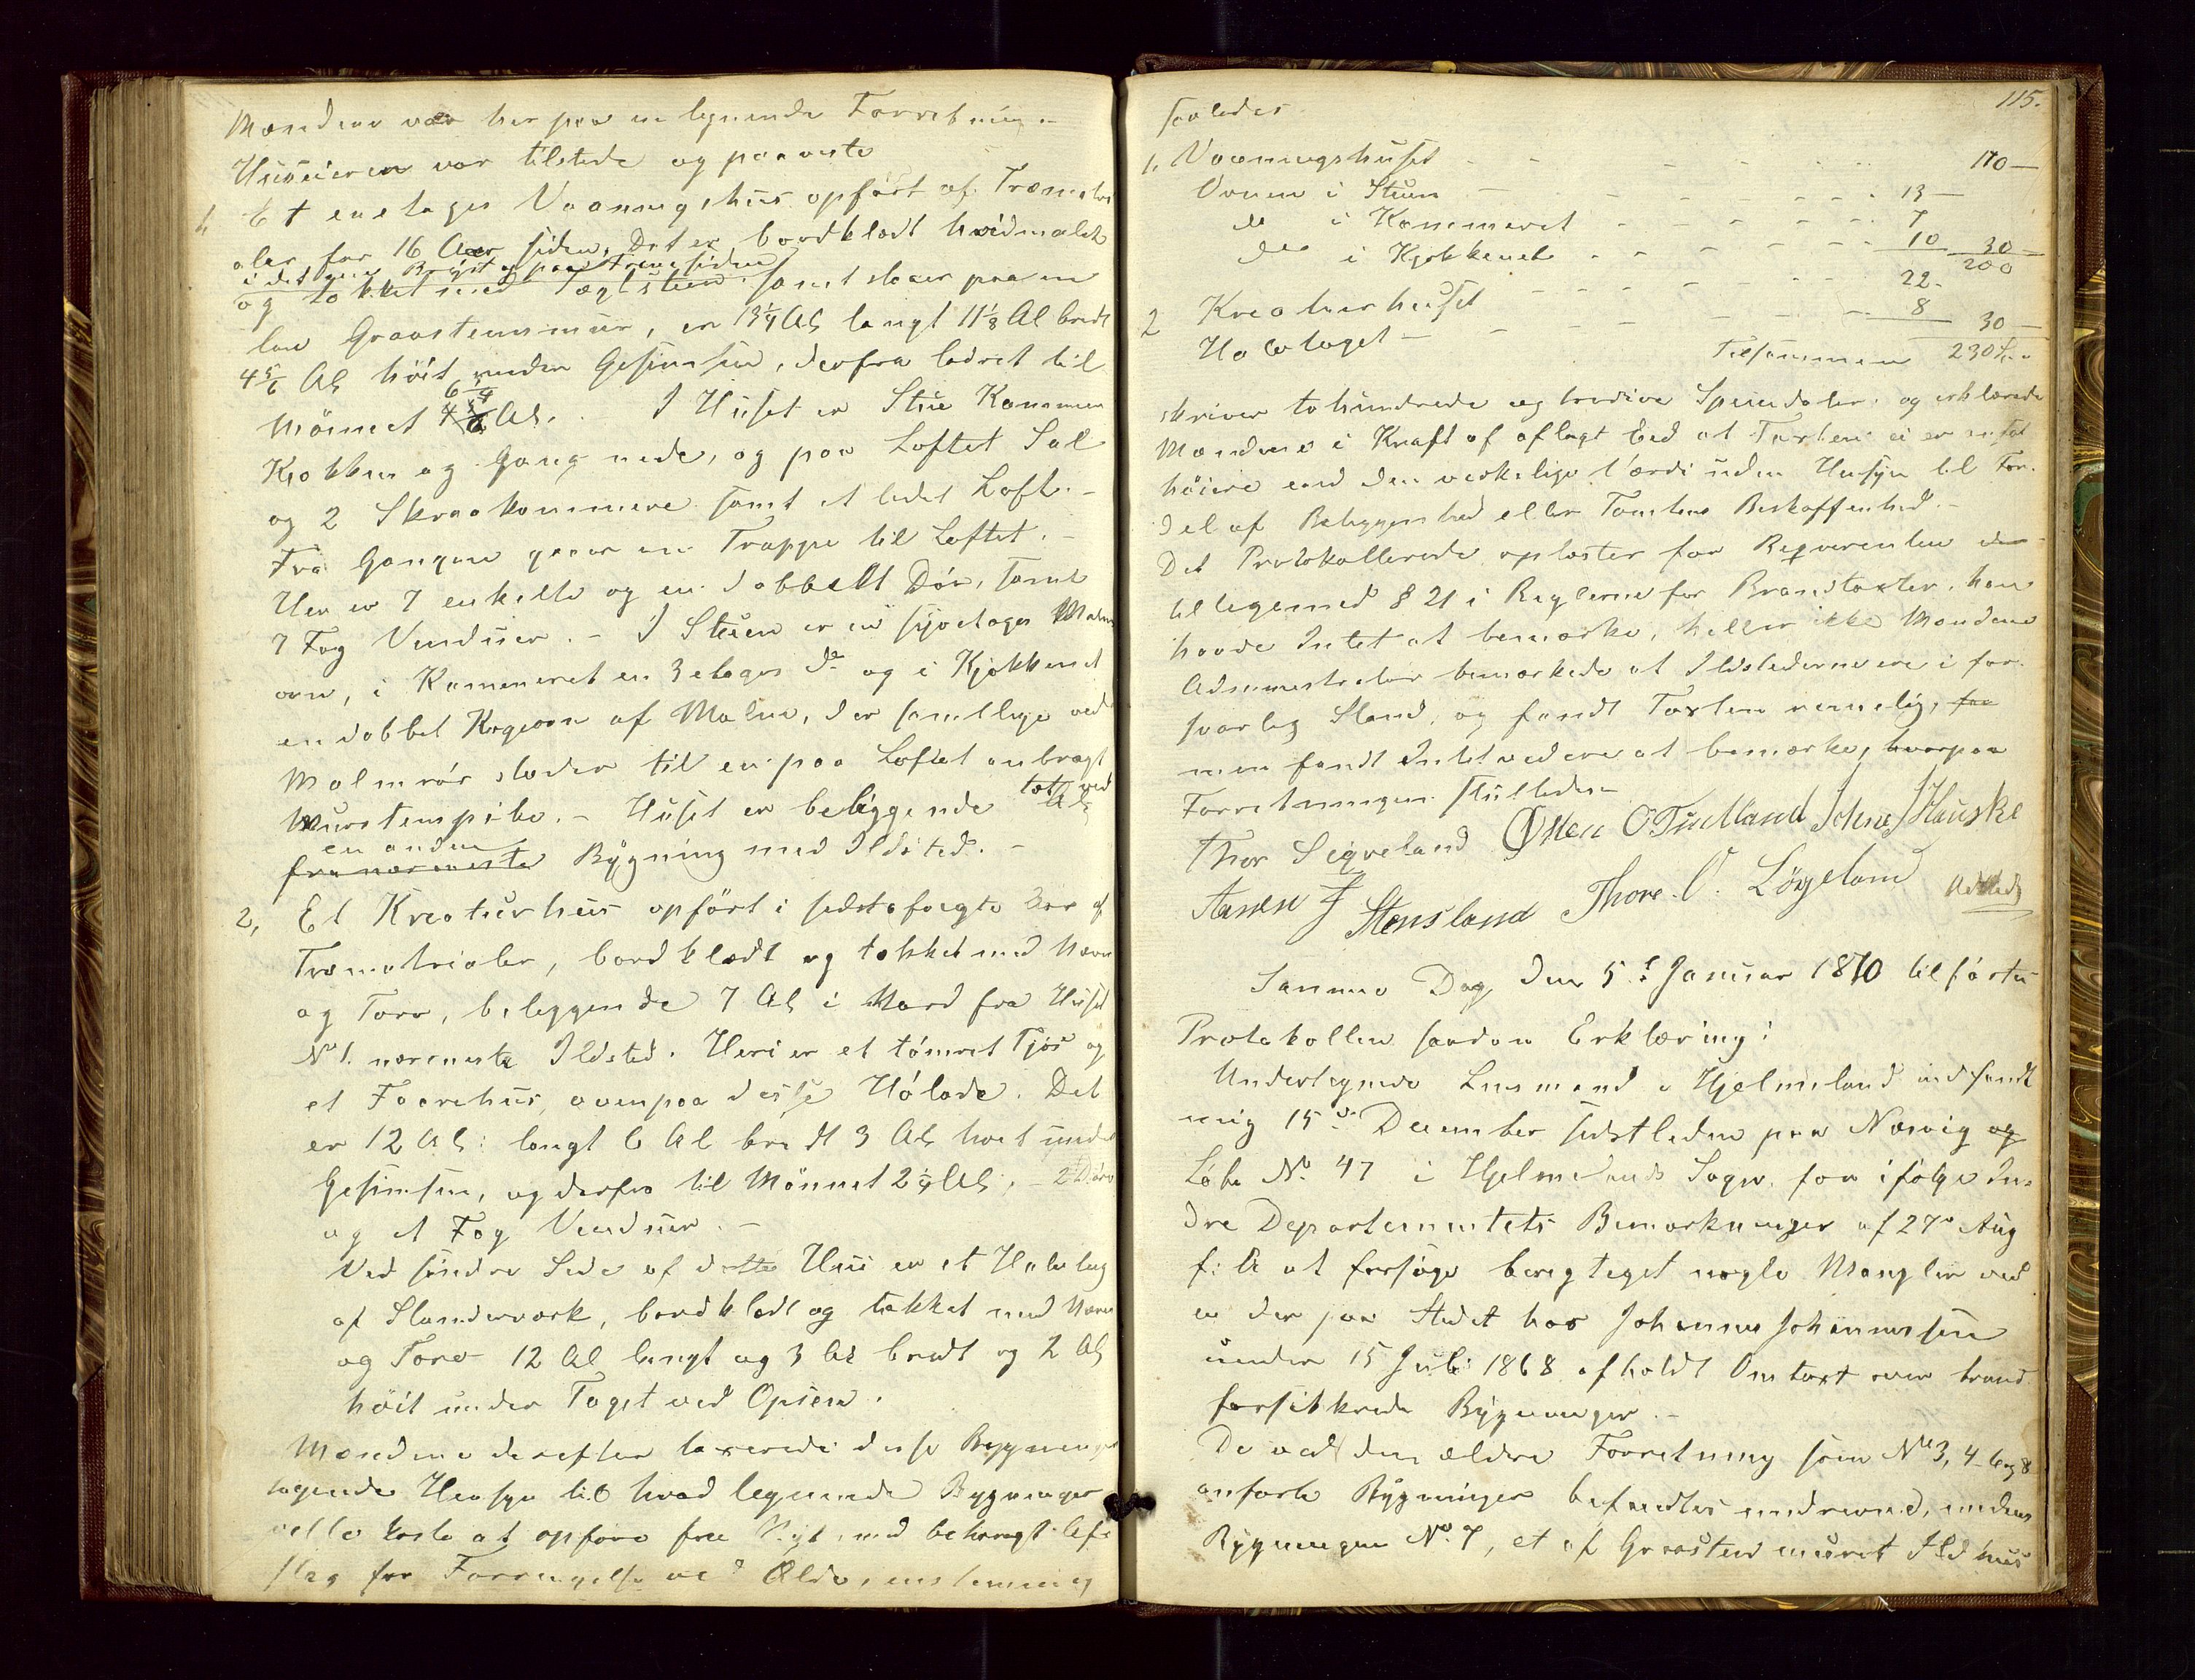 Mændene var her paa en lignende Forretning.
Huseieren var tilstede og paaviste
1, Et eetages Vaaningshus opført af Træmateri
aler for 16 Aar siden. Det er bordklædt hvidmalet
i det ene Bryst og paa Fremsiden
og tækket med Taglsteen samt staaer paa en
lav Graasteensmuur, er 13¼ Al langt 11⅛ Al bredt
4⅚ Al høit under Gesimsen, derfra lodret til
Mønnet 6¾ Al. I Huset er Stue Kammer
Kjøkken og Gang nede, og paa Loftet Sal
og 2 Skraakammere samt et lidet Loft. -
Fra Gangen gaaer en Trappe til Loftet. -
Her er 7 enkelte og en dobbelt Dør, samt
7 Fag Vinduer. - I Stuen er en Malm
ovn, i Kammeret en 3 etages do og i Kjøkkenet
en dobbet Kogeovn af Malm, der samtlige ved
Malmrør støder til en paa Loftet anbragt
Muursteenspibe. - Huset er beliggende tæt ved
en anden
fra nærmeste Bygning med Ildsted. -
2, Et Kreaturhus opført i sidstafvigte Aar af
Træmatrialer, bordklædt og tækket med Næver
og Torv, beliggende 7 Al i Nord fra Huset
No 1. nærmeste Ildsted. Heri er et tømret Fjøs og
et Faarehus, ovenpaa disse Hølade. Det
er 12 Al: langt 6 Al bredt 3 Al høit under
Gesimsen, og derfra til Mønnet 2¼ Al, - 2 Døre
og et Fag Vinduer. -
Ved søndre Side af dette Huus er et Halvtag
af Standerværk, bordklædt og tækket med Næver
og Torv 12 Al langt og 3 Al bredt og 2 Al
høit under Taget ved Opsen.
Mændene derefter taxerede disse Bygninger
tagende Hensyn til hvad lignende Bygninger
ville koste at opføre fra Nyt, med behørigt Af
slag for Forringelse ved Ælde, enstemmig
115.
saaledes
1, Vaaningshuset - - - - 170 -
Ovnen i Stuen - - - - 13 -
do i Kammeret - - - - 7
do i Kjøkkenet - - - - 10 30 -
200
2 Kreaturhuset - - - - 22 -
Halvtaget - - - - 8 30 -
Tilsammen 230 Spd.
skriver tohundrede og tredive Speciedaler og erklærede
Mændene i Kraft af aflagt Eed at Taxten ei er ansat
høiere end den virkelige Værdi uden Hensyn til For-
del af Beliggenhed eller Tomtens Beskaffenhed. -
Det Protokollerede oplæstes for Reqvirenten
tilligemed § 21 i Reglerne for Brandtaxter, han
havde Intet at bemærke, heller ikke Mændene
Administrator bemærkede at Ildstederne ere i for-
svarlig Stand, og fandt Taxten rimelig,
men fandt Intet videre at bemærke, hvorpaa
Forretningen sluttedes -
Thor Sigveland Østen O Tudland Johne J Hauske
Aanen J Stensland Thore O. Løgeland
Samme Dag den 5te Januar 1870 tilførtes
Protokollen saadan Erklæring:
Undertegnede Lensmand i Hjelmeland indfandt
mig 15de December sidstleden paa Næsvig og
Løbe No 47 i Hjelmelands Sogn for ifølge In-
dre Departementets Bemærkninger af 27de Aug
f: A at forsøge berigtiget nogle Mangler ved
en der paa Stedet hos Johannes Johannessen
under 15 Juli 1868 afholdt Omtaxt over brand-
forsikkrede Bygninger. -
De ved den ældre Forretning som No 3, 4 6 og 8
anførte Bygninger befandtes nedrevne, medens
Bygningen No 7, et af Graasteen muret Ildhuus